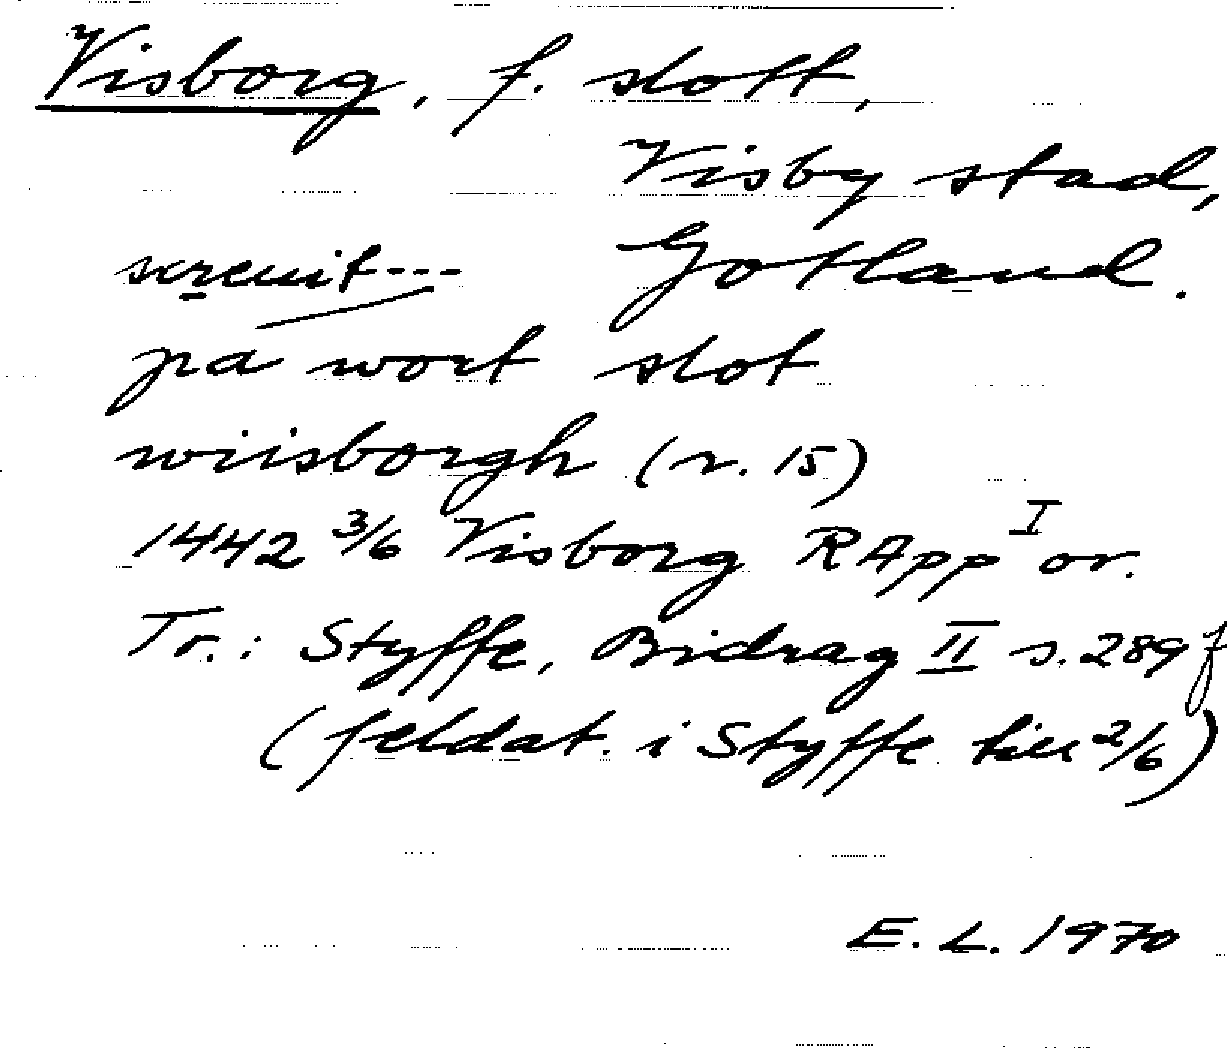 Visborg, f. slott,
Visby stad,
Gotland.
screuit---
pa wort slot
wiisborgh (r. 15)
1442 3/6 Visborg RApp I or.
Tr.: Styffe, Bidrag II s. 289 f
(feldat. i Styffe till 2/6)
E. L. 1970